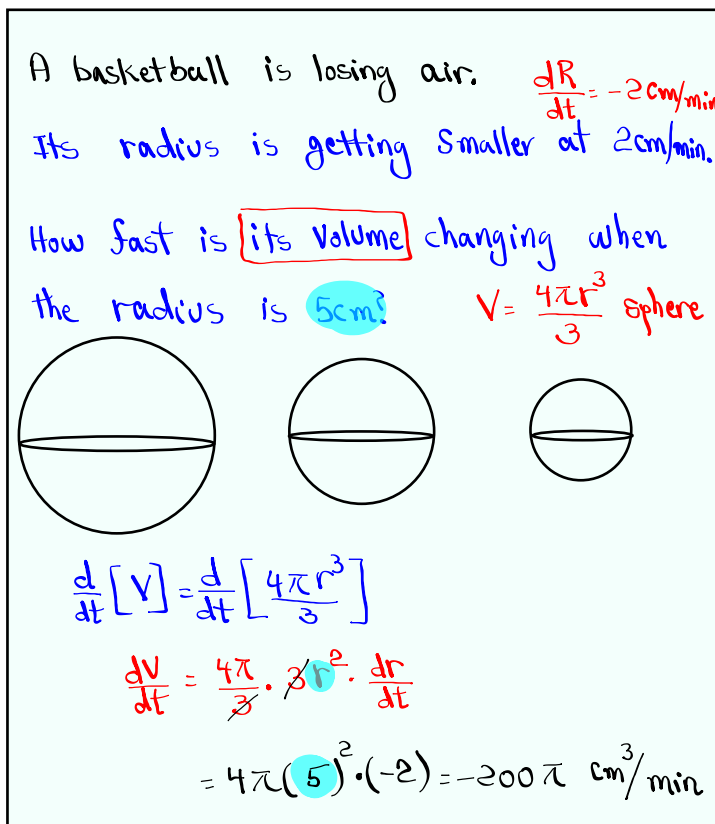 A basketball is losing air.
dR/dt = -2cm/min
Its radius is getting smaller at 2cm/min.
How fast is its Volume changing when
the radius is 5cm?
V = 4πr³/3 sphere
d/dt [V] = d/dt [4πr³/3]
dV/dt = 4π/3 · 3r² · dr/dt
= 4π(5)² · (-2) = -200π cm³/min